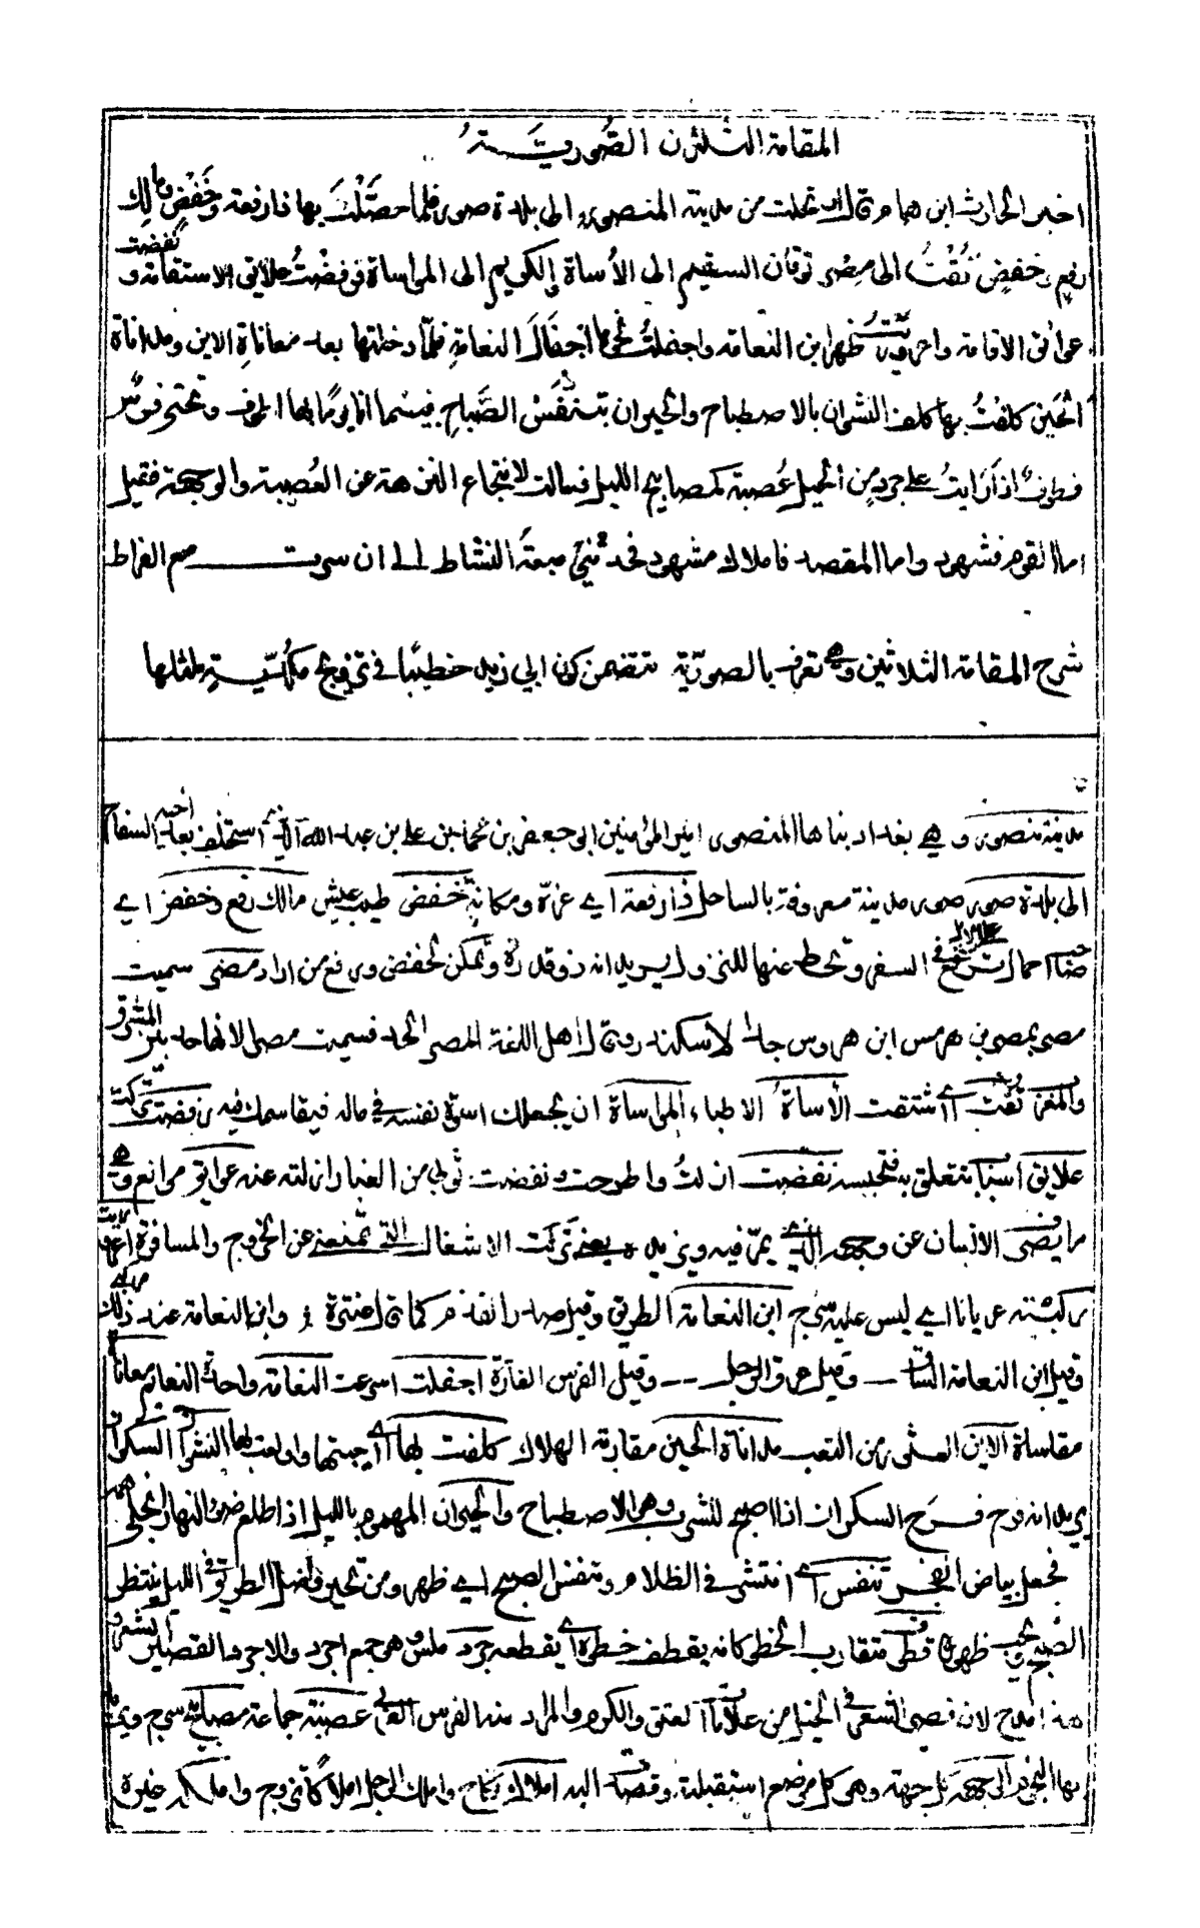 المقامة الثلثون الصورية
اخبر الحارث ابن همام قال ارتحلت من مدينة المنصور الى بلدة صور فلما حصلت بها ذا رفعة وخفض ومالك
رفع وخفض تقت الى مصر توقان السقيم الى الأساة والكريم الى المواساة فرفضت علائق الاستقامة ونفضت
عوائق الاقامة واعروريت ظهر ابن النعامة واجفلت نحوها اجفال النعامة فلما دخلتها بعد معاناة الاين ومداناة
الحين كلفت بها كلف النشوان بالاصطباح والحيران بتنفس الصباح فبينما انا يوما بها اطوف وتحتي فرس
قطوف اذ رايت على جرد من الخيل عصبة كمصابيح الليل فسالت لانتجاع النزهة عن العصبة والوجهة فقيل
اما القوم فشهود واما المقصد فاملاك مشهود فحدتني ميعة النشاط الى ان سرت مع الفراط
شرح المقامة الثلاثين وهي تعرف بالصورية تتضمن كون ابي زيد خطيبا في تزويج مكدية لمثلها
مدينة منصور وهي بغداد بناها المنصور امير المؤمنين ابو جعفر بن محمد بن علي بن عبد الله الذي استخلف بعد اخيه السفاح
الى بلدة صور صور مدينة معروفة بالساحل ذا رفعة اي عزة ومكانة خفض طيب عيش مالك رفع وخفض اي
احمال ترفع في السفر وتحط عنها للنزول يريد انه ذو قدرة وتمكن لخفض ورفع من اراد مصر سميت
مصر بمصر بن هرمس ابن هردوس جد الاسكندر وقال اهل اللغة المصر الحد فسميت مصر لانها حد بين المشرق
والمغرب تقت اي اشتقت الأساة الاطباء المواساة ان يجعلك اسوة نفسه في ماله فيقاسمك فيه رفضت تركت
علايق اسباب تتعلق به فتحبسه نفضت ازلت واطرحت ونفضت ثوبي من الغبار ازلته عنه عوائق موانع وهي
ما يصرف الانسان عن وجهه الذي يمر فيه ويزيله يعني تركت الاشغال التي تمنعني عن الخروج والمسافرة اعروريت
ركبته عريانا اي ليس عليه سرج ابن النعامة الطريق وقيل صدر القدم كما قال عنترة وابن النعامة عند ذلك مركبي
وقيل ابن النعامة الساق وقيل عرق الرجل وقيل الفرس الفارة اجفلت اسرعت النعامة واحدة النعام معاناة
مقاساة الاين العشي من التعب مداناة الحين مقاربة الهلاك كلفت بها اي احببتها واولعت بها النشوان السكران
يريد انه فرح فرح السكران اذا اصبح للشرب وهو الاصطباح والحيران المهموم بالليل اذا طلع ضوء النهار انجلى همه
فجعل بياض الفجر تنفس اي انتشر في الظلام وتنفس الصبح اي ظهر ومن تحير وضل الطريق في الليل ينتظر
الصبح ظهوره قطوف متقارب الخطو كانه يقطف خطوه اي يقطعه جرد ملس وهي جمع اجرد والاجرد القصير الشعر و
هذا مدح لان قصر الشعر في الخيل من علامات العتق والكرم والمراد هنا الفرس عصبة جماعة مصابيح سرج ويريد
بها النجوم الى جهة وهو كل موضع استقبلته وقصدت اليه املاك نكاح واملك الرجل املاكا تزوج